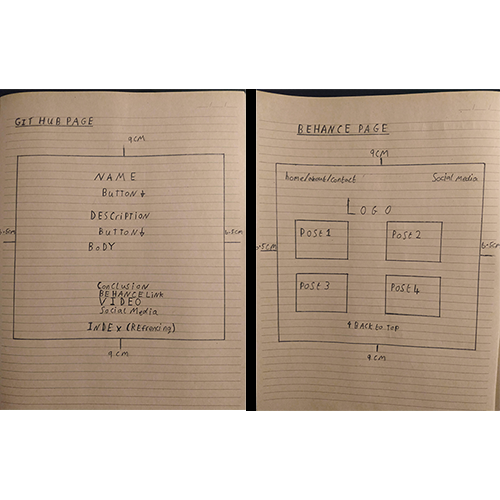 GIT HUB PAGE
9CM
NAME
BUTTON ↓
DESCRIPTION
BUTTON ↓
BODY
CONCLUSION
BEHANCE LINK
VIDEO
SOCIAL MEDIA
INDEX (REFRENCING)
9.CM
BEHANCE PAGE
9CM
home/about/contact
Social Media
LOGO
POST 1
POST 2
POST 3
POST 4
↑ BACK to TOP
9.CM